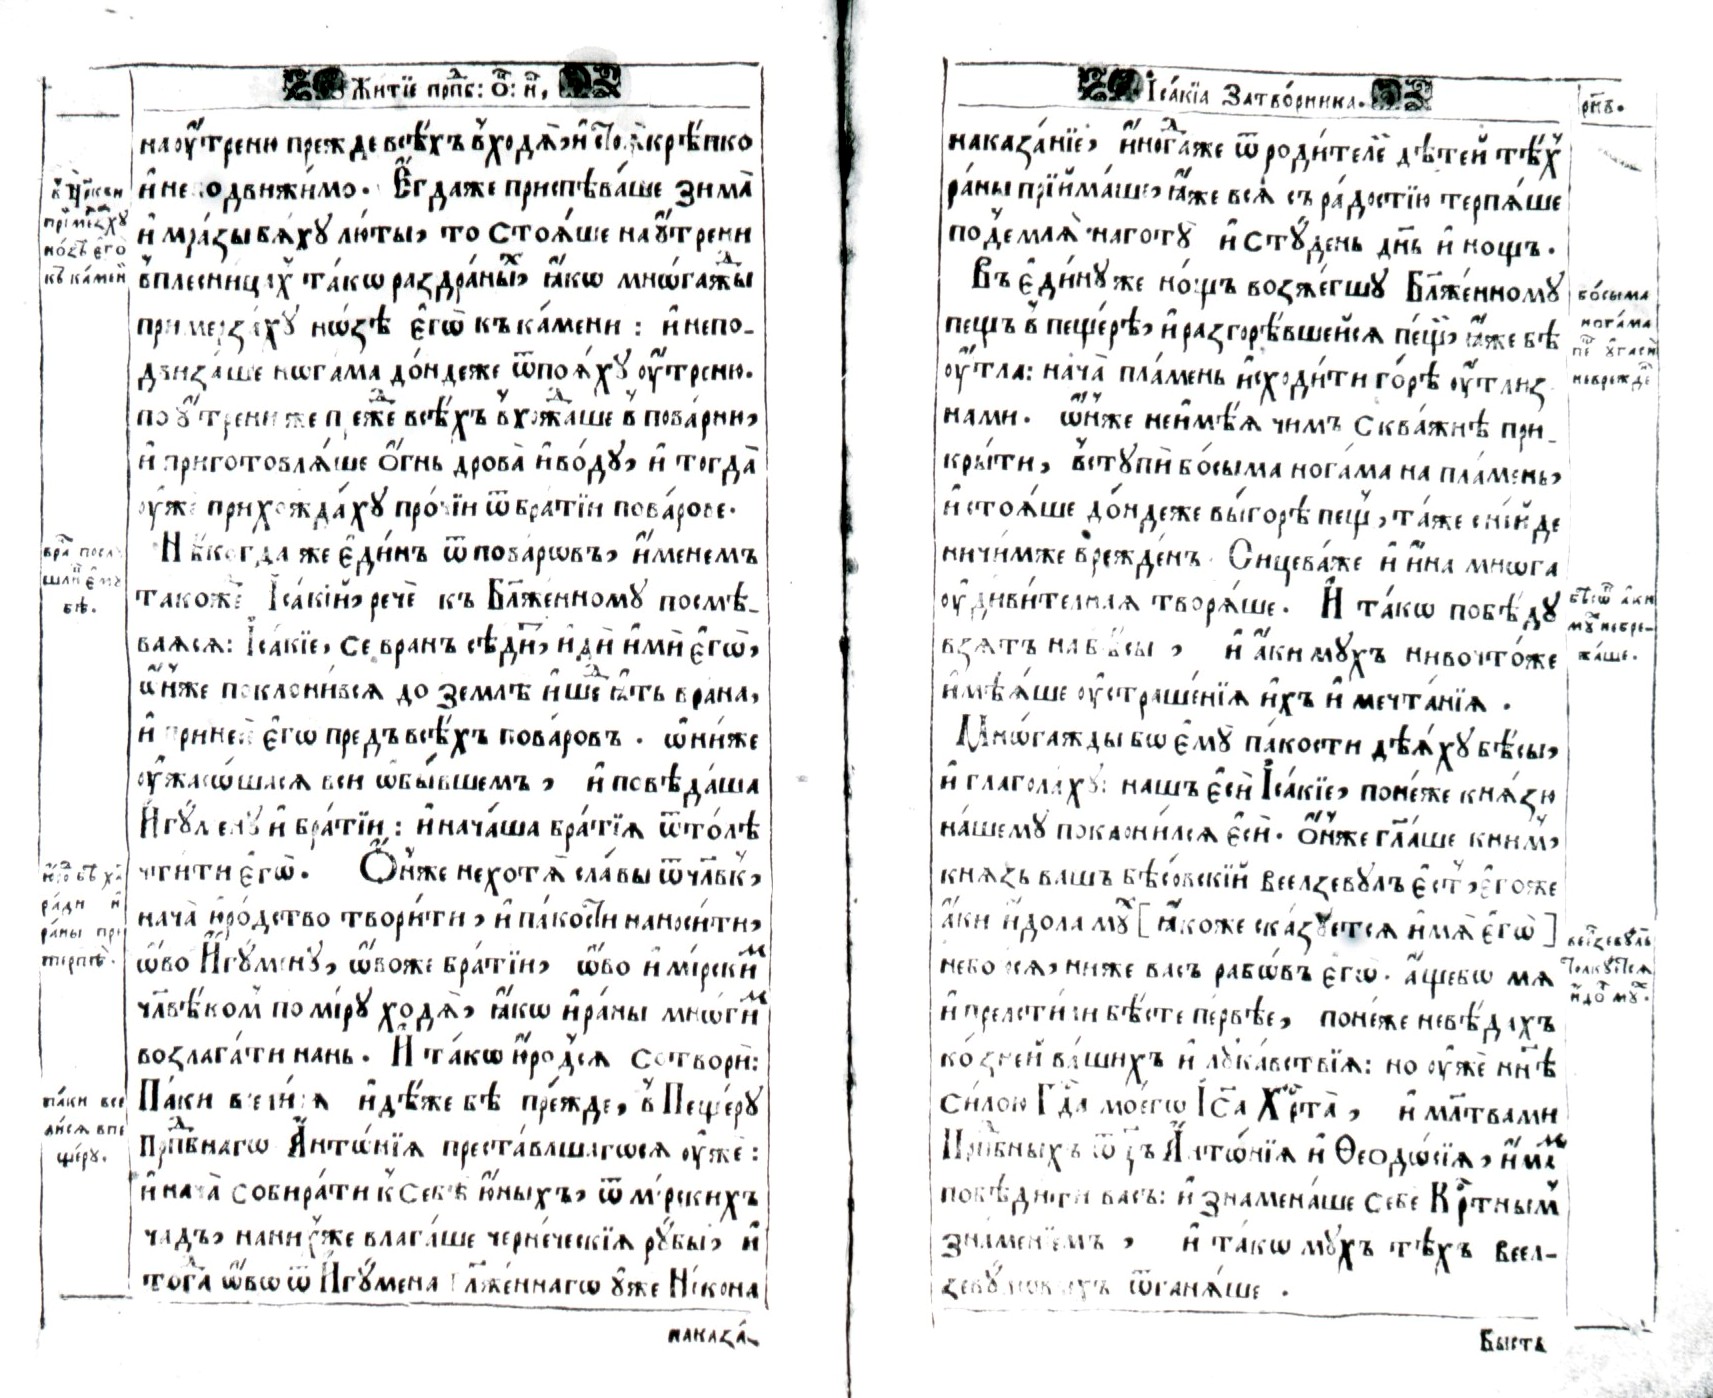 Житїе прпⷣб: ѻ҃: н҃,
на оу҆́треню прежде всѣ́хъ в̾ходѧ̀, и҆ крѣ́пко
и҆ не Е҆гда́же приспѣва́ше зима̀
и҆ мра́зы вѧ́ху лю́ты, то стоѧ́ше на оу҆́трени
в̾плесни́цах̾ та́кѡ раздра́ных̾, ꙗ҆́кѡ мнѡ́гажⷣы
примерза́ху нѡ́зѣ є҆гѡ̀ къ ка́мени : и҆ непо-
двиза́ше нѡга́ма до́ндеже ѿпоѧ́ху оу҆́треню.
по оу҆́трени же преⷤⷣе всѣ́хъ в̾хожⷣаше в̾ пова́рни,
и҆ приготовлѧ́ше ѻ҆́гнь дрова̀ и҆ во́ду, и҆ тогда̀
оу҆жѐ прихожда́ху про́чїи ѿ бра́тїи пова́рове.
Нѣ́когда же є҆ди́нъ ѿ пова́рѡвъ, и҆́менемъ
та́коже І҆са́кїй, речѐ къ Бл҃же́нному посмѣ-
ва́ѧсѧ: І҆са́кїе, се вра́нъ сѣди́т̾, и҆дѝ и҆мѝ є҆гѡ̀,
ѡ҆́н̾же поклони́всѧ до землѣ̀ и҆шеⷣ ꙗ҆́тъ вра́на,
и҆ принесѐ є҆гѡ̀ предъ всѣ́хъ пова́ровъ . ѡ҆ни́же
оу҆жасѡ́шасѧ вси ѡ҆ бы́вшемъ , и҆ повѣ́даша
И҆гу́мену и҆ бра́тїи : и҆ нача́ша бра́тїѧ ѿто́лѣ
чти́ти є҆гѡ̀. Ѻ҆́н̾же не хотѧ̀ сла́вы ѿ чл҃вѣ́к̾,
нача̀ и҆ро́дство твори́ти , и҆ па́кости наноси́ти,
ѡ҆́во И҆гу́мену, ѡ҆́воже бра́тїи, ѡ҆́во и҆ мі́рскиⷨ
чл҃вѣ́ком̾ по мі́ру ходѧ̀, ꙗ҆́кѡ и҆ ра́ны мнѡ́гиⷨ
возлага́ти нань. И҆ та́кѡ и҆ро́д̾сѧ сотворѝ:
Па́ки всели́сѧ и҆дѣ́же бѣ пре́жде, в̾ Пеще́ру
Прпⷣбнагѡ А҆нтѡ́нїѧ преста́вльшагѡсѧ оу҆жѐ :
и҆ нача̀ собира́ти к̾ себѣ̀ ю҆́ныхъ, ѿ мі́рскихъ
ча́дъ, нани́х̾же влага́ше черне́ческїѧ ру́бы, и҆
тогⷣа ѡ҆́вѡ ѿ И҆гу́мена Бл҃же́ннагѡ оу҆́же Ні́кона
наказа́-
в̾ Цр҃кви
примеⷬза́ху
но́зѣ є҆го̀
къ ка́мен̾
вра́
бѣ.
ра́ди и҆
ра́ны при
терпѣ̀.
па́ки все
ли́сѧ впе
ще́ру.
І҆са́кїа Затво́рника.
рн҃в.
наказа́нїе, и҆ногⷣа́же ѿ роди́телей дѣте́й тѣ́х̾
ра́ны прїйма́ше, ꙗ҆́же всѧ̀ съ ра́достїю терпѧ́ше
под̾е́млѧ наготу̀ и҆ сту́день дн҃ь и҆ нощъ.
Въ є҆ди́ну же но́щъ возже́гшу Бл҃же́нному
пещъ в̾ пеще́рѣ, и҆ разгорѣ́вшейсѧ пещ̾, ꙗ҆́же бѣ
оу҆́тла: нача̀ пла́мень и҆сходи́ти го́рѣ оу҆́тлиз-
нами. Ѻ҆́н̾же не и҆мѣ́ѧ чимъ сква́жнѣ при-
кры́ти, в̾ступѝ бо́сыма нога́ма на пла́мень,
и҆ стоѧ́ше до́ндеже вы́горѣ пещ̾, та́же сни́йде
ничи́мже врежде́нъ. Сицева́же и҆ и҆́на мнѡ́га
оу҆диви́телнаѧ творѧ́ше. И҆ та́кѡ побѣ́ду
взѧ́тъ на бѣ́сы , и҆ а҆́ки му́хъ нивочто́же
и҆мѣ́ѧше оу҆страше́нїѧ и҆́хъ и҆ мечта́нїѧ .
Мнѡ́гажды бѡ є҆му̀ па́кости дѣ́ѧху бѣ́сы,
и҆ глаго́лаху: нашъ є҆сѝ І҆са́кїе, поне́же кнѧ́зю
на́шему поклони́лсѧ є҆сѝ. Ѻ҆́н̾же гл҃аше кни́м̾,
кнѧ́зь вашъ бѣсо́вскїй Веелзеву́лъ є҆́ст̾, є҆го́же
а҆́ки и҆́дола му́х̾ [ꙗ҆́коже сказу́етсѧ и҆́мѧ є҆гѡ̀]
небою́сѧ, ниже васъ рабѡ́въ є҆гѡ̀. а҆́щебѡ мѧ
и҆ прелсти́ли бѣ́сте пе́рвѣе, поне́же невѣ́дахъ
ко́зней ва́шихъ и҆ лука́вствїѧ: но оу҆жѐ нн҃ѣ
си́лою Гдⷭ҇а моегѡ̀ І҆с҃а Хрⷭ҇та̀ , и҆ мл҃твами
Прпⷣбныхъ ѿц҃ъ А҆нтѡ́нїѧ и҆ Ѳеодѡ́сїѧ, и҆́маⷨ
побѣди́ти васъ: и҆ знамена́ше себе Крⷭ҇тным̾
зна́менїемъ , и҆ та́кѡ му́хъ тѣ́хъ Веел-
зеву́ловыхъ ѿганѧ́ше .
Бысть
бо́сыма
нога́ма
бѣсѡⷡ҇ а҆́ки
му́х̾ небре-
жа́ше.
веелзеву́лъ
толку́етсѧ
и҆до́л̾ му́х̾.